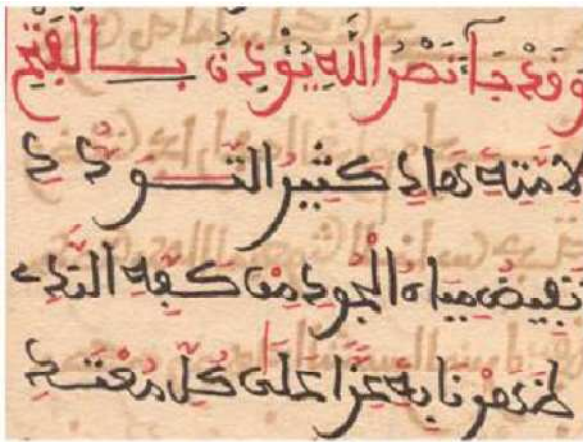 وقد جآ نصر الله يؤذن بالفتح
لامته هاد كثير التودد
تفيض مياه الجود من كفه الندي
ظهرنا به عزا على كل معتد